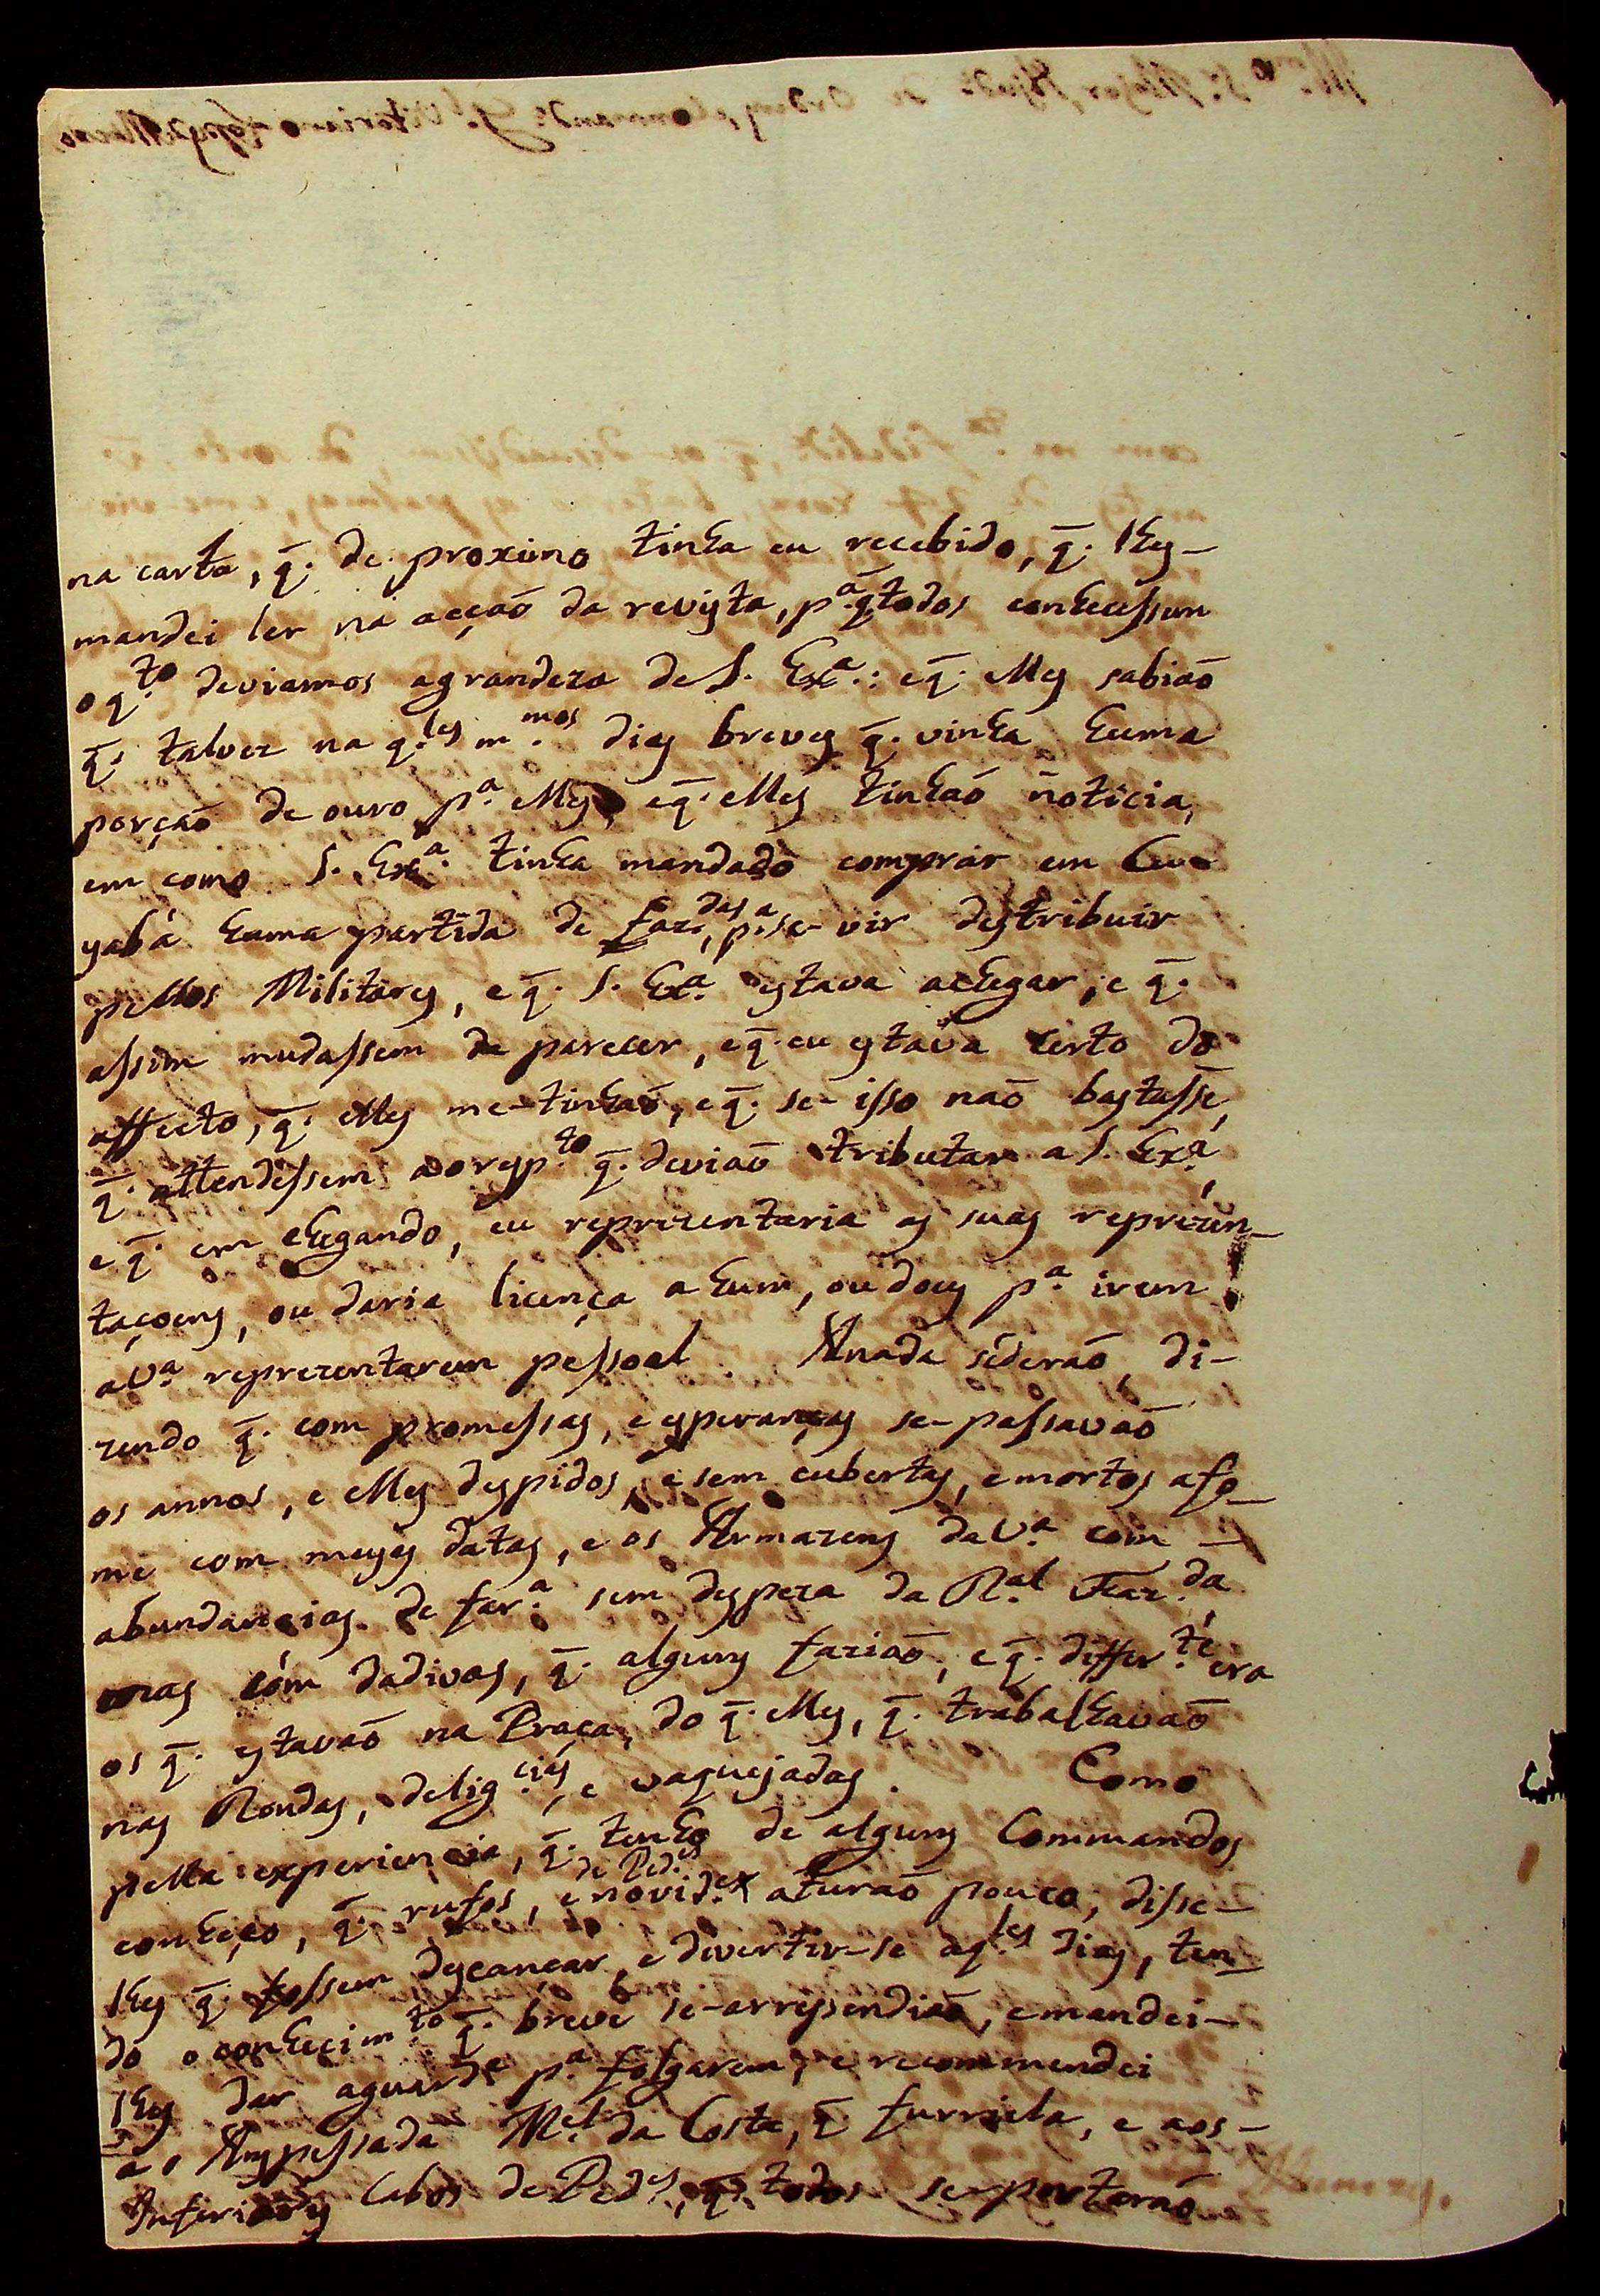 na carta, q̄. de proximo tinha eu recebido, q̄. lhes-
mandei ler na acçaõ da revista, p.ª q̄ todos conhecessem
o q.to deviamos a grandeza de S. Ex.ª: e q̄. elles sabiaõ
q̄. talvez na q.les m.mos dias breves q̄. vinha huma
porçaõ de ouro p.ª elles, e q̄. elles tinhaõ noticia,
em como S. Ex.ª tinha mandado comprar em Cu-
yabá huma partida de faz.das, p.ª se-vir destribuir
pellos Militares, e q̄. S. Ex.ª estava a chegar, e q̄.
assim mudassem de parecer, e q̄. eu estava certo do
affecto, q̄. elles me-tinhaõ, e q̄. se-isso naõ bastasse,
q̄. attendessem ao resp.to q̄. deviaõ tributar a S. Ex.ª,
e q̄. em chegando, eu reprezentaria as suas reprezen-
taçoens, ou daria licença a hum, ou dous p.ª irem
a V.ª reprezentarem pessoal. A nada séderaõ, di-
zendo q̄. com promessas, e esperanças se-passavaõ
os annos, e elles despidos, e sem cubertas, e mortos a fo-
me com meyas datas, e os Armazens da V.ª com
abundancias de far.ª sem despeza da R.al Faz.da,
mas cóm dadivas, q̄. alguns faziaõ, e q̄. differ.te era
os q̄. estavaõ na Praça, do q̄. elles, q̄. trabalhavaõ
nas Rondas, delig.cias, e vaquejadas. Como
pella experiencia, q̄. tenho de alguns Commandos
de Ped.es
conheço, q̄. rufos, e novid.es aturaõ pouco, disse-
lhes q̄. fossem descançar, e divertir-se aq.les dias, ten-
do o conhecim.to q̄. breve se-arrependiaõ, e mandei-
lhes dar aguard.e p.ª folgarem, e recommendei
ao Anspessada M.el da Costa, q̄ furriela, e aos-
Inferiores Cabos de Ped.es, q̄. todos se-portaraõ